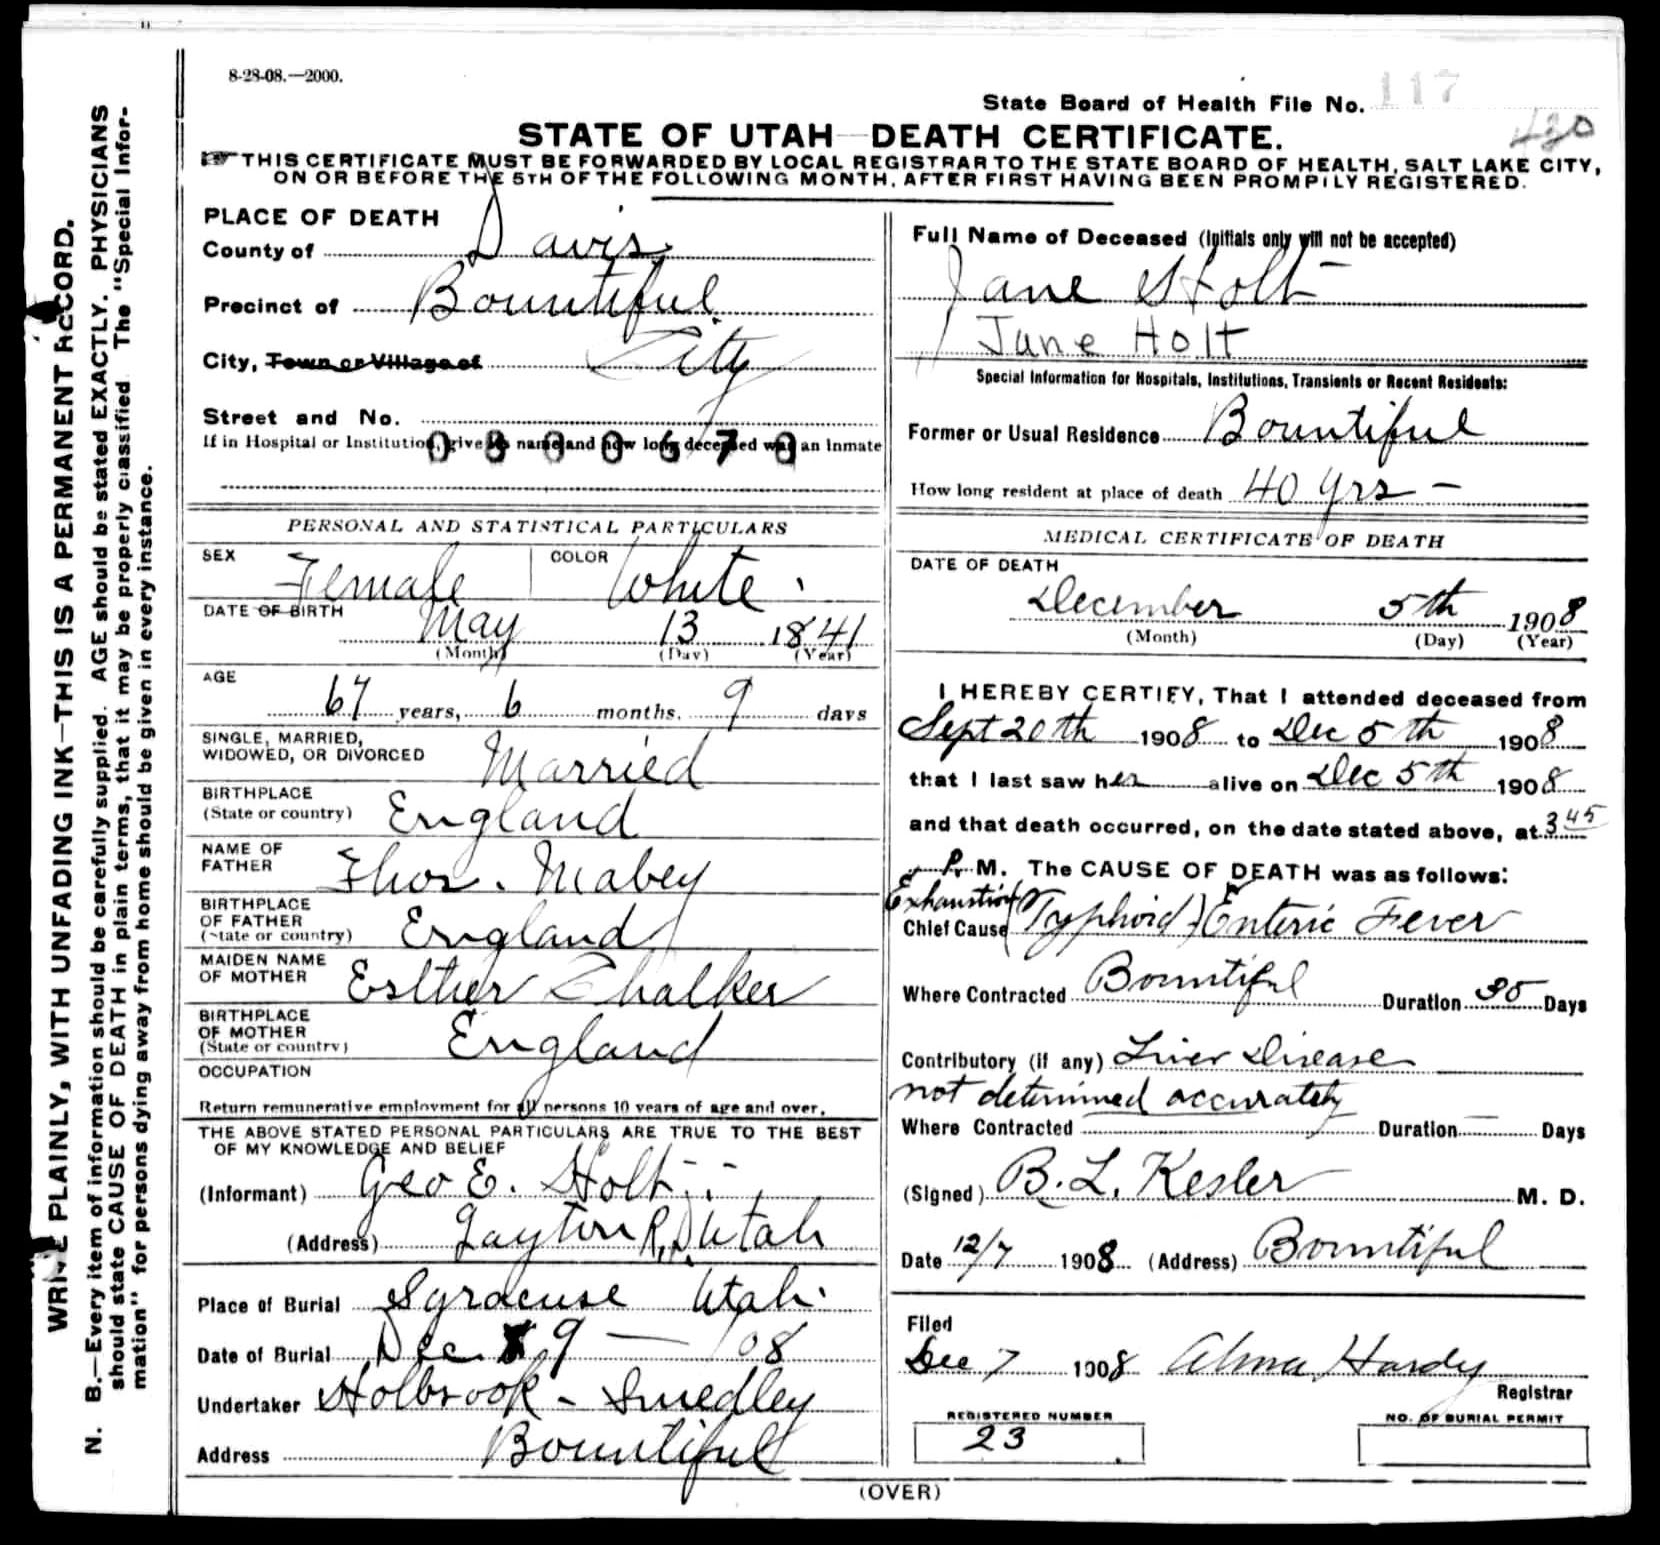 8-28-08.—2000.
State Board of Health File No. 117
430
STATE OF UTAH—DEATH CERTIFICATE.
☞ THIS CERTIFICATE MUST BE FORWARDED BY LOCAL REGISTRAR TO THE STATE BOARD OF HEALTH, SALT LAKE CITY,
ON OR BEFORE THE 5TH OF THE FOLLOWING MONTH, AFTER FIRST HAVING BEEN PROMPTLY REGISTERED.
WRITE PLAINLY, WITH UNFADING INK—THIS IS A PERMANENT RECORD.
N. B.—Every item of information should be carefully supplied. AGE should be stated EXACTLY. PHYSICIANS
should state CAUSE OF DEATH in plain terms, that it may be properly classified. The "Special Infor-
mation" for persons dying away from home should be given in every instance.
PLACE OF DEATH
County of Davis
Precinct of Bountiful
City, Town or Village of City
Street and No.
If in Hospital or Institution, give its name and how long deceased was an Inmate
PERSONAL AND STATISTICAL PARTICULARS
SEX Female COLOR White
DATE OF BIRTH
May 13 1841
(Month) (Day) (Year)
AGE
67 years, 6 months, 9 days
SINGLE, MARRIED,
WIDOWED, OR DIVORCED Married
BIRTHPLACE
(State or country) England
NAME OF
FATHER Thos. Mabey
BIRTHPLACE
OF FATHER
(State or country) England
MAIDEN NAME
OF MOTHER Esther Chalker
BIRTHPLACE
OF MOTHER
(State or country) England
OCCUPATION
Return remunerative employment for all persons 10 years of age and over.
THE ABOVE STATED PERSONAL PARTICULARS ARE TRUE TO THE BEST
OF MY KNOWLEDGE AND BELIEF
(Informant) Geo E. Holt
(Address) Layton R.D. Utah
Place of Burial Syracuse Utah.
Date of Burial Dec 9 — 08
Undertaker Holbrook - Smedley
Address Bountiful
Full Name of Deceased (Initials only will not be accepted)
Jane Holt
Jane Holt
Special Information for Hospitals, Institutions, Transients or Recent Residents:
Former or Usual Residence Bountiful
How long resident at place of death 40 yrs —
MEDICAL CERTIFICATE OF DEATH
DATE OF DEATH
December 5th 1908
(Month) (Day) (Year)
I HEREBY CERTIFY, That I attended deceased from
Sept 20th 1908 to Dec 5th 1908
that I last saw her alive on Dec 5th 1908
and that death occurred, on the date stated above, at 3 45
P. M. The CAUSE OF DEATH was as follows:
Exhaustion
Chief Cause (Typhoid) Enteric Fever
Where Contracted Bountiful Duration 35 Days
Contributory (if any) Liver Disease
not determined accurately
Where Contracted Duration — Days
(Signed) B. L. Kesler M. D.
Date 12/7 1908 (Address) Bountiful
Filed
Dec 7 1908 Alma Hardy
Registrar
REGISTERED NUMBER
23
NO. OF BURIAL PERMIT
(OVER)